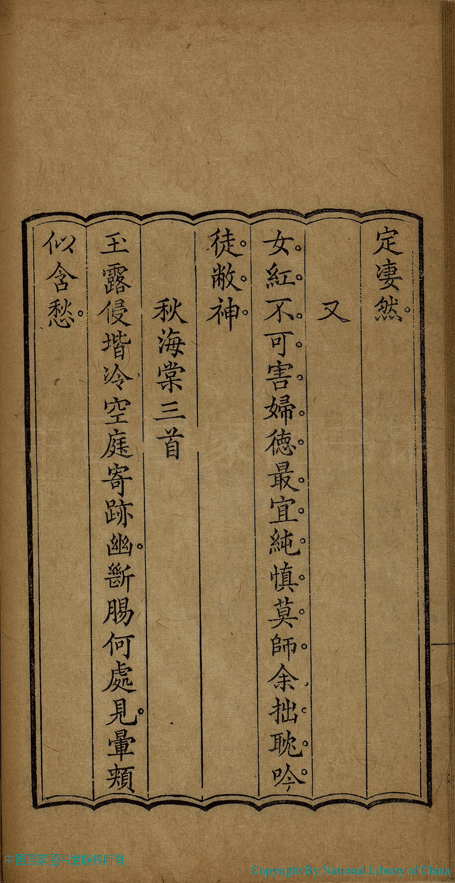 定凄然。
又
女紅不可害婦德最宜純慎莫師余拙耽吟
徒敝神
秋海棠三首
玉露侵堦冷空庭寄跡幽。斷腸何處見。暈頰
似含愁。
中国国家图书馆版权所有
Copyright By National Library of China